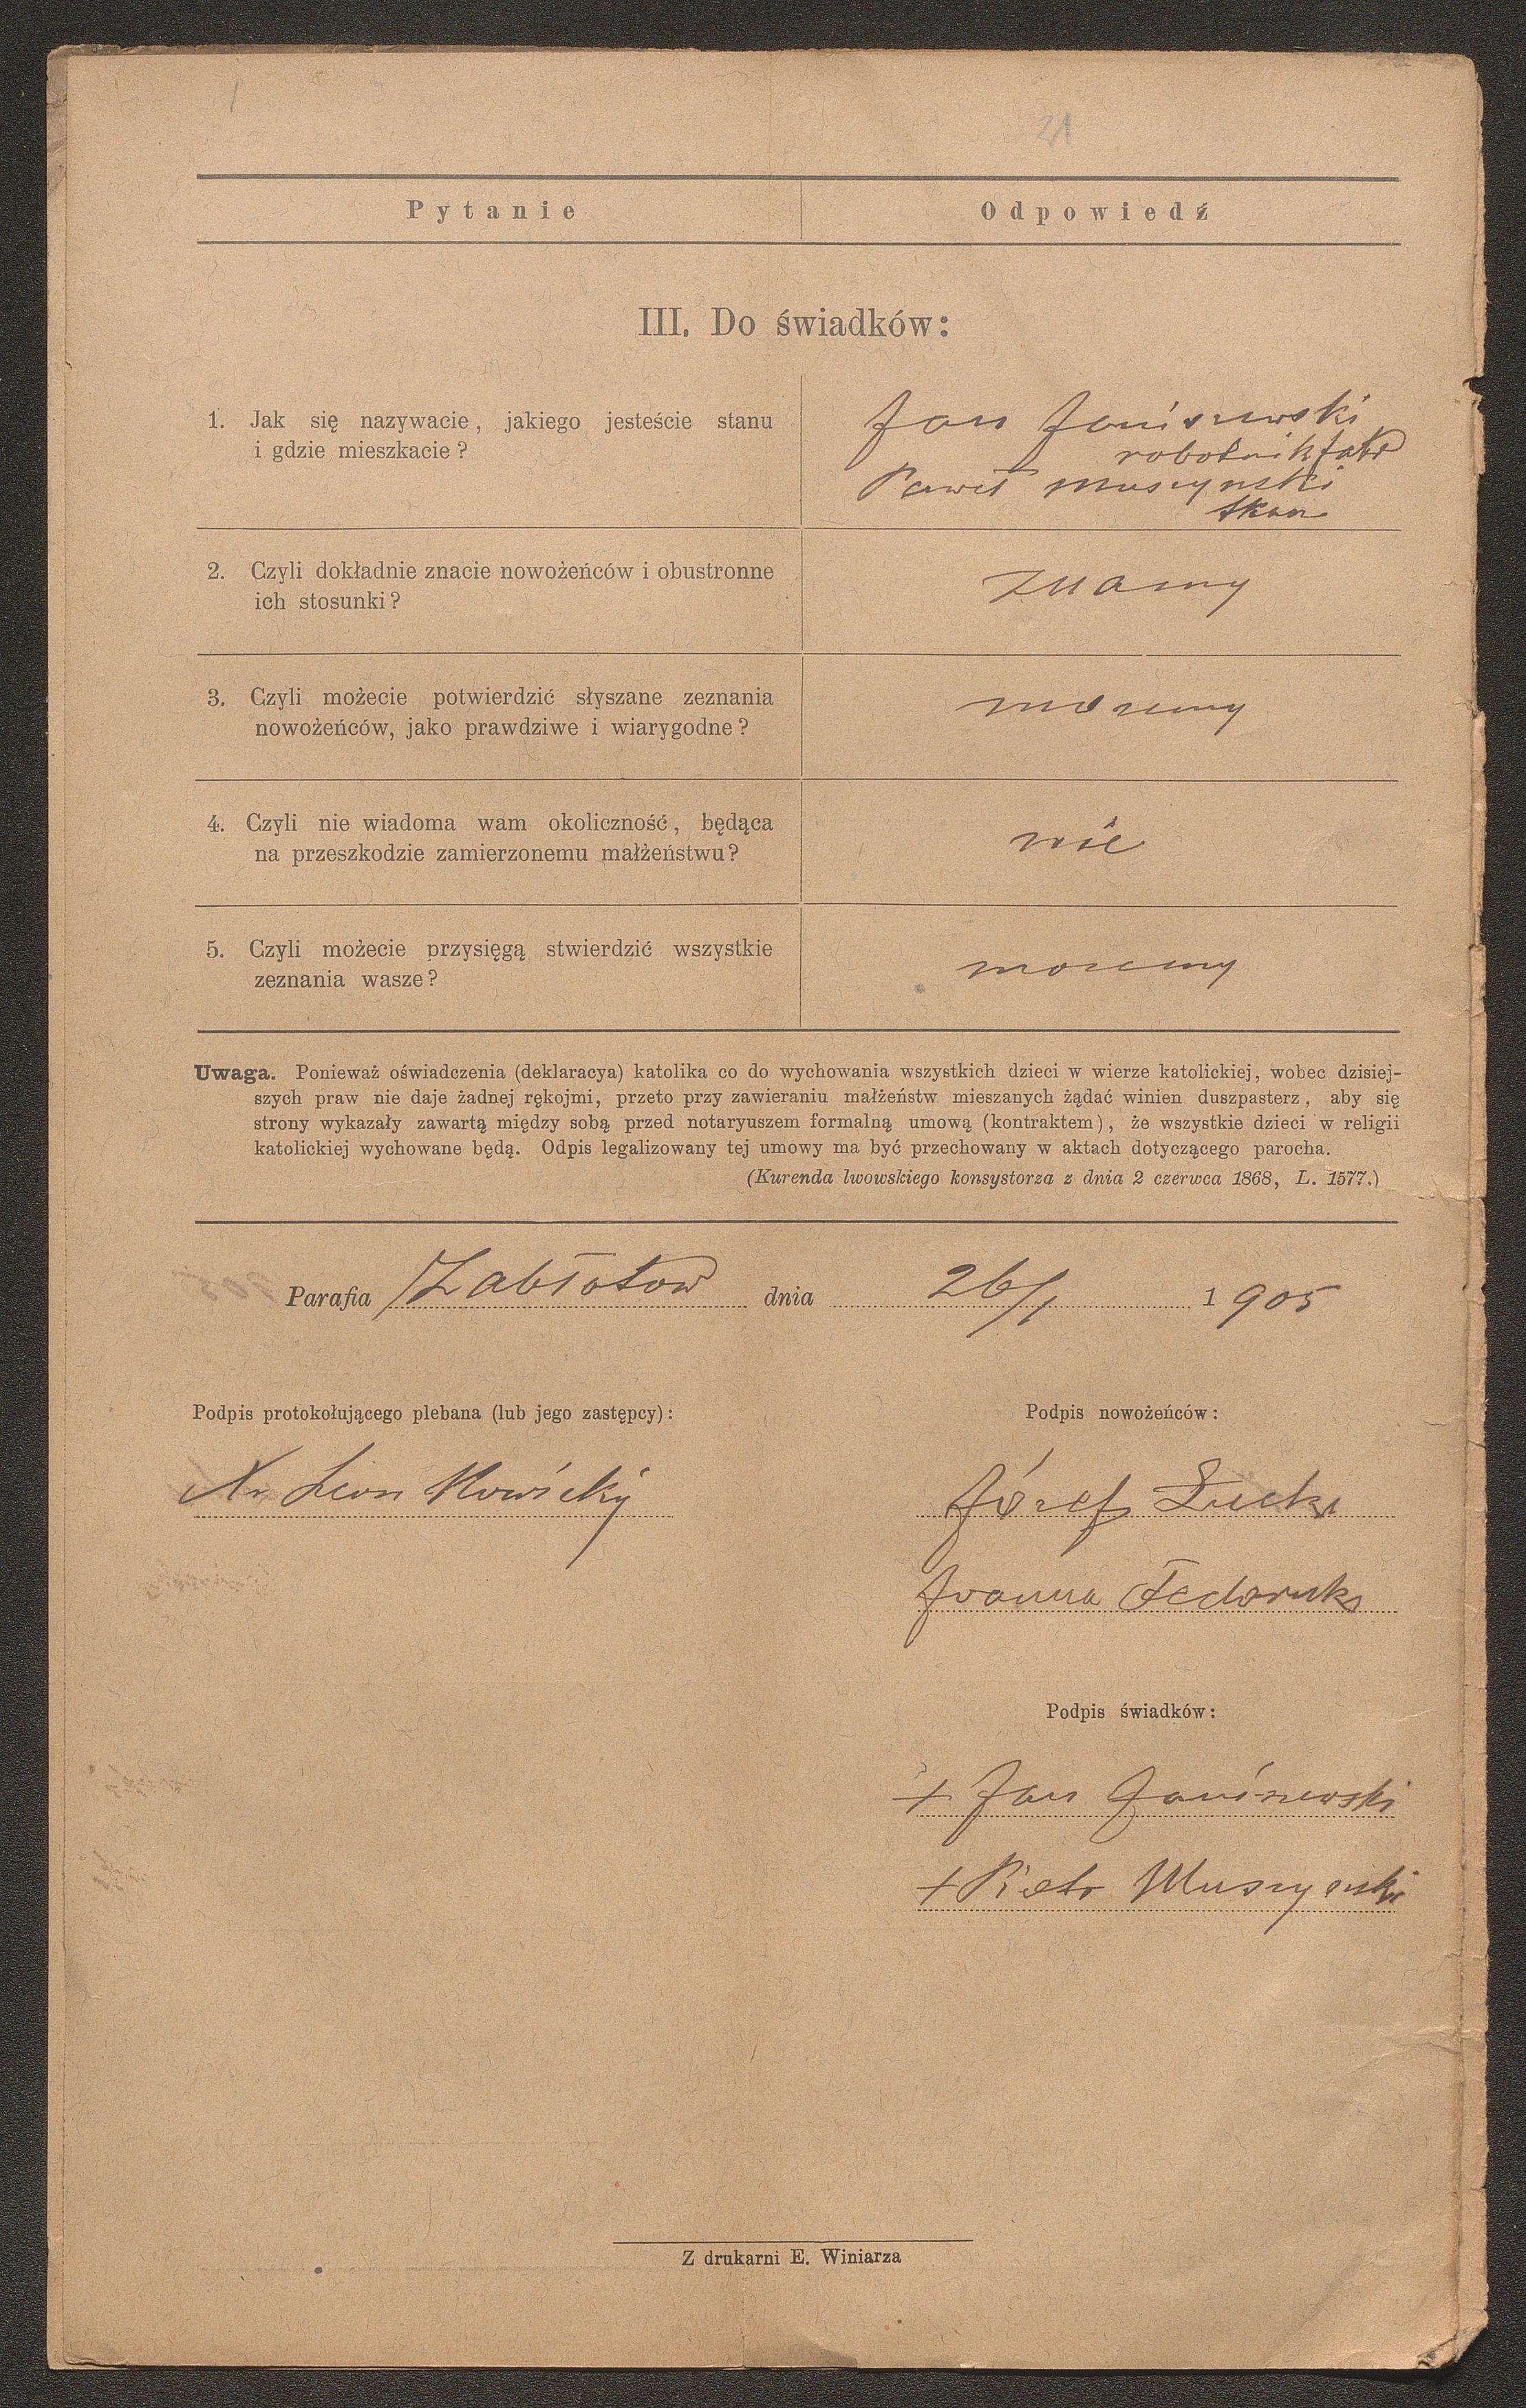 21
Pytanie Odpowiedź
III. Do świadków:
1. Jak się nazywacie, jakiego jesteście stanu
i gdzie mieszkacie?
Jan Janiszewski
robotnik fabr
Paweł Muszynski
tkacz
2. Czyli dokładnie znacie nowożeńców i obustronne
ich stosunki?
znamy
3. Czyli możecie potwierdzić słyszane zeznania
nowożeńców, jako prawdziwe i wiarygodne?
mozemy
4. Czyli nie wiadoma wam okoliczność, będąca
na przeszkodzie zamierzonemu małżeństwu?
nie
5. Czyli możecie przysięgą stwierdzić wszystkie
zeznania wasze?
mozemy
Uwaga. Ponieważ oświadczenia (deklaracya) katolika co do wychowania wszystkich dzieci w wierze katolickiej, wobec dzisiej-
szych praw nie daje żadnej rękojmi, przeto przy zawieraniu małżeństw mieszanych żądać winien duszpasterz, aby się
strony wykazały zawartą między sobą przed notaryuszem formalną umową (kontraktem), że wszystkie dzieci w religii
katolickiej wychowane będą. Odpis legalizowany tej umowy ma być przechowany w aktach dotyczącego parocha.
(Kurenda lwowskiego konsystorza z dnia 2 czerwca 1868, L. 1577.)
Parafia Zabłotow dnia 26/1 1905
Podpis protokołującego plebana (lub jego zastępcy): Podpis nowożeńców:
X. Leon Nowicky
Józef Łucki
Joanna Fedoruk
Podpis świadków:
+ Jan Janiszewski
+ Piotr Muszynski
Z drukarni E. Winiarza